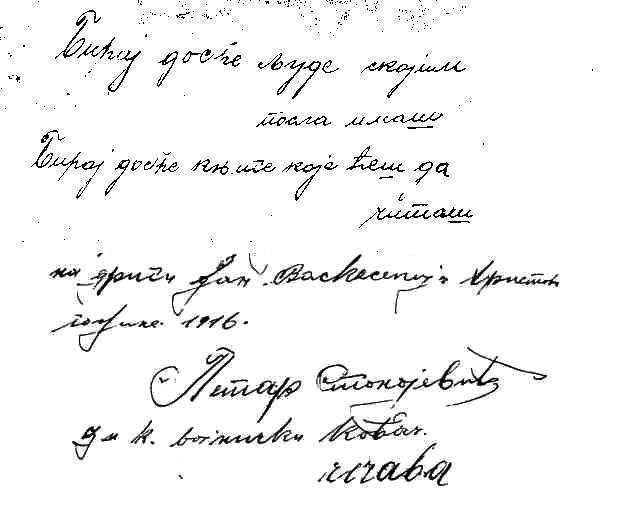 Бирај досће људе скојим
посла имаш
Бирај досће књиге које ћеш да
читаш
на други дан Васкесенија Христов
године 1916.
Петар Стокојевић
к. војнички Ковач.